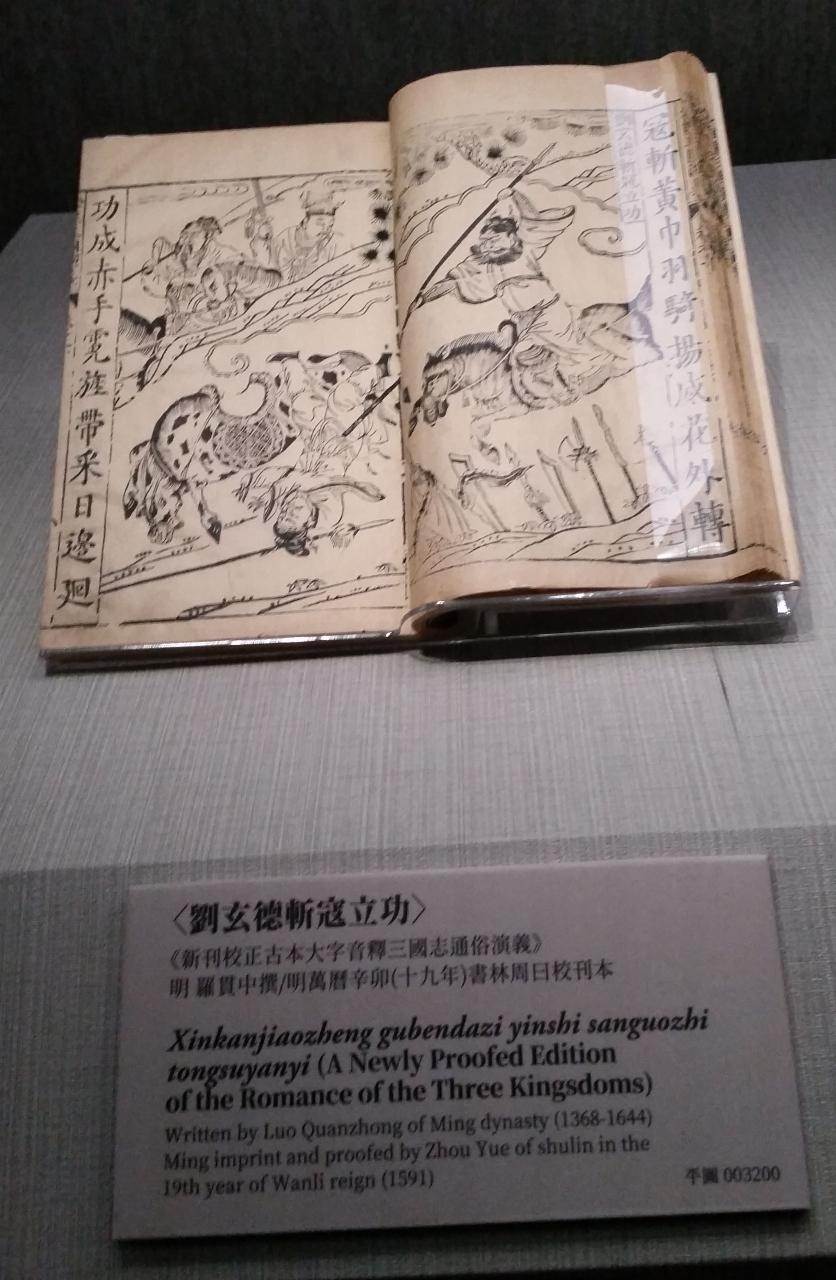 寇斬黃巾羽騎揚威花外轉
劉玄德斬寇立功
功成赤手霓旌帶采日邊廻
〈劉玄德斬寇立功〉
《新刊校正古本大字音釋三國志通俗演義》
明 羅貫中撰/明萬曆辛卯(十九年)書林周曰校刊本
Xinkanjiaozheng gubendazi yinshi sanguozhi
tongsuyanyi (A Newly Proofed Edition
of the Romance of the Three Kingsdoms)
Written by Luo Quanzhong of Ming dynasty (1368-1644)
Ming imprint and proofed by Zhou Yue of shulin in the
19th year of Wanli reign (1591)
平圖 003200